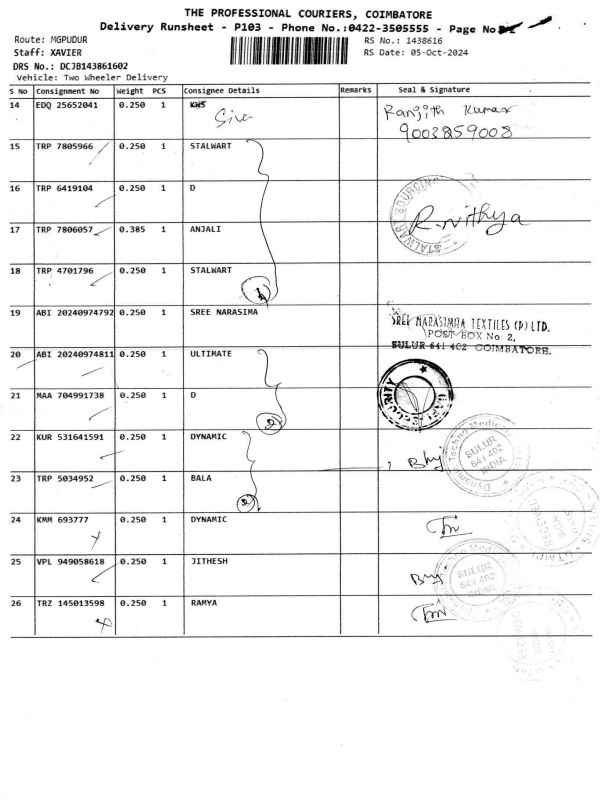 THE PROFESSIONAL COURIERS, COIMBATORE
Delivery Runsheet - P103 - Phone No.:0422-3505555 - Page No
Route: MGPUDUR
RS No.: 1438616
Staff: XAVIER
RS Date: 05-Oct-2024
DRS No.: DCJB143861602
Vehicle: Two Wheeler Delivery
S No Consignment No Weight PCS Consignee Details Remarks Seal & Signature
14 EDQ 25652041 0.250 1 Siva Ranjith Kumar
9003859008
15 TRP 7805966 0.250 1 STALWART
16 TRP 6419104 0.250 1 D
STALWART SOURCING
R. Nithya
17 TRP 7806057 0.385 1 ANJALI
18 TRP 4701796 0.250 1 STALWART
19 ABI 20240974792 0.250 1 SREE NARASIMA
SREE NARASIMHA TEXTILES (P) LTD.
POST BOX No. 2,
SULUR-641 402 COIMBATORE.
20 ABI 20240974811 0.250 1 ULTIMATE
SECURITY
21 MAA 704991738 0.250 1 D
2
22 KUR 531641591 0.250 1 DYNAMIC
Dynamic Techno Medicals
SULUR
641 402
INDIA
23 TRP 5034952 0.250 1 BALA
2
24 KMM 693777 0.250 1 DYNAMIC
RECEIVED
25 VPL 949058618 0.250 1 JITHESH
SULUR
641 402
INDIA
26 TRZ 145013598 0.250 1 RAMYA